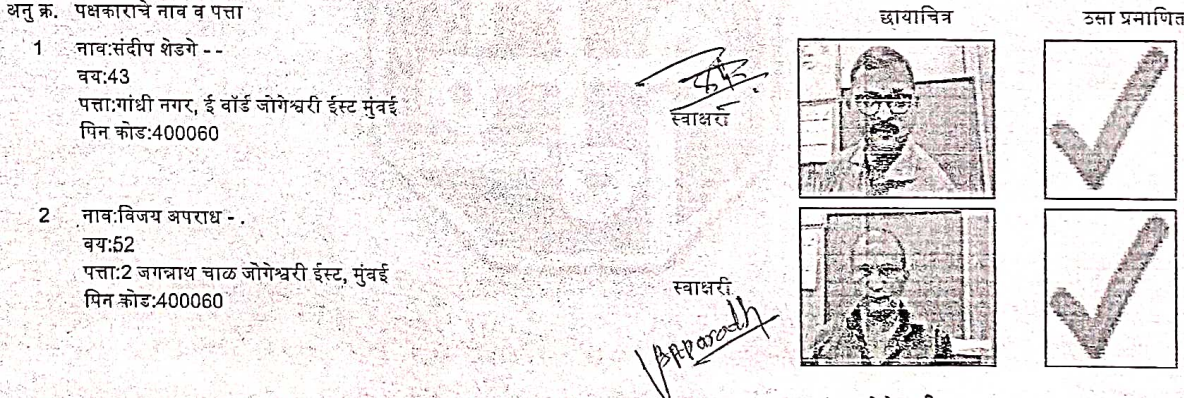 अनु क्र. पक्षकाराचे नाव व पत्ता
छायाचित्र
ठसा प्रमाणित
1 नाव:संदीप शेडगे - -
वय:43
पत्ता:गांधी नगर, ई वॉर्ड जोगेश्वरी ईस्ट मुंबई
पिन कोड:400060
स्वाक्षरी
2 नाव:विजय अपराध - .
वय:52
पत्ता:2 जगन्नाथ चाळ जोगेश्वरी ईस्ट, मुंबई
पिन कोड:400060
स्वाक्षरी